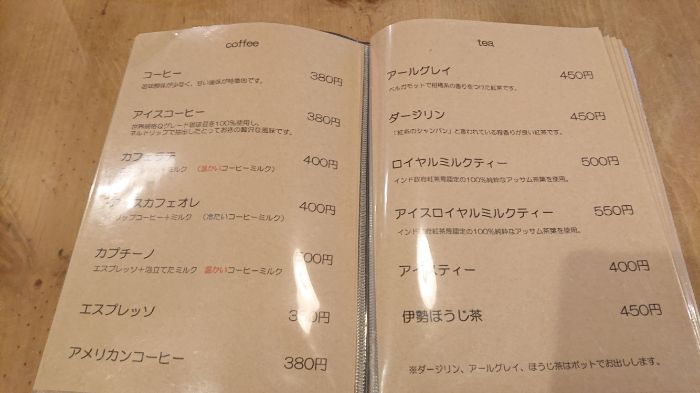 coffee
コーヒー 380円
苦味酸味が少なく、甘い後味が特徴的です。
アイスコーヒー 380円
世界規格なグレード珈琲豆を100%使用し、
ネルドリップで抽出したとっておきの贅沢な風味です。
カフェラテ 400円
+ミルク (温かいコーヒーミルク)
カフェオレ 400円
コーヒー+ミルク (冷たいコーヒーミルク)
カプチーノ 00円
エスプレッソ+泡立てたミルク 温かいコーヒーミルク
エスプレッソ 円
アメリカンコーヒー 380円
tea
アールグレイ 450円
ベルガモットで柑橘系の香りをつけた紅茶です。
ダージリン 450円
「紅茶のシャンパン」と言われている程香りが良い紅茶です。
ロイヤルミルクティー 500円
インド政府紅茶局認定の100%純粋なアッサム茶葉を使用。
アイスロイヤルミルクティー 550円
インド政府紅茶局認定の100%純粋なアッサム茶葉を使用。
アイスティー 400円
伊勢ほうじ茶 450円
※ダージリン、アールグレイ、ほうじ茶はポットでお出しします。